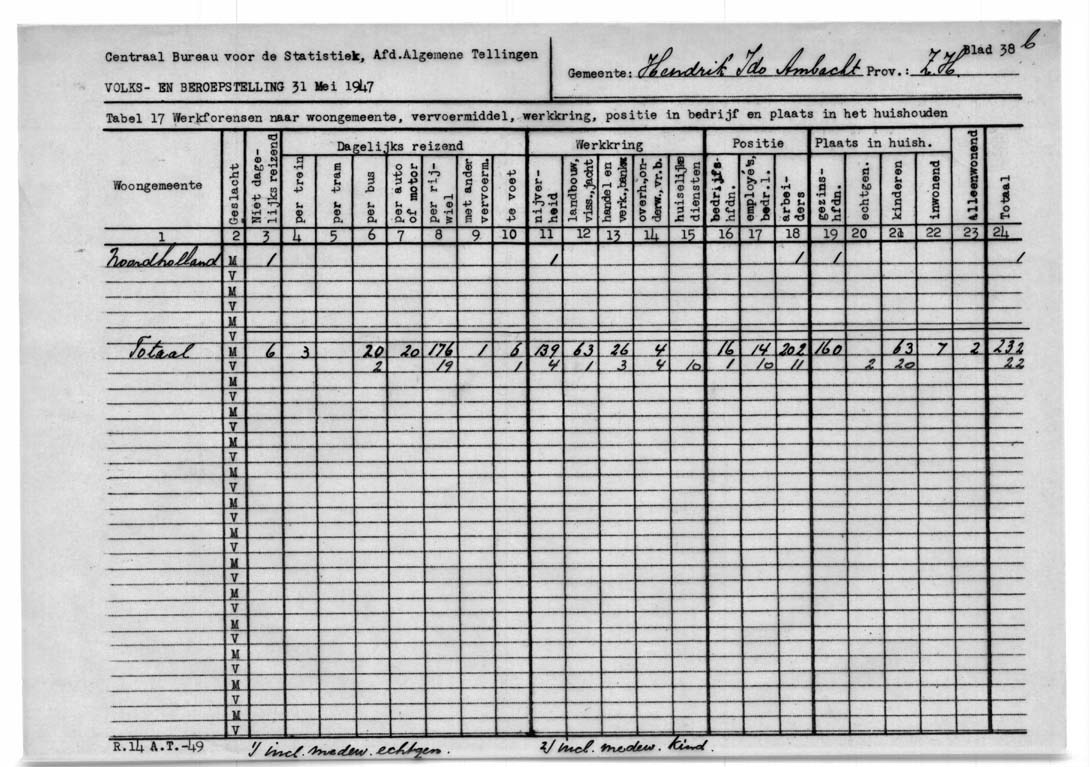 Centraal Bureau voor de Statistiek, Afd.Algemene Tellingen
VOLKS- EN BEROEPSTELLING 31 Mei 1947
Gemeente: Hendrik Ido Ambacht Prov.: Z.H. Blad 38 b
Tabel 17 Werkforensen naar woongemeente, vervoermiddel, werkkring, positie in bedrijf en plaats in het huishouden
Woongemeente Geslacht Niet dage-lijks reizend Dagelijks reizend Werkkring Positie Plaats in huish. Alleenwonend Totaal
per trein per tram per bus per auto of motor per rij-wiel met ander vervoerm. te voet nijver-heid landbouw, viss., jacht handel en verk., bankw overh., on-derw., vr.b. huiselijke diensten bedrijfs-hfdn. employé's, bedr.l. arbei-ders gezins-hfdn. echtgen. kinderen inwonend
1 2 3 4 5 6 7 8 9 10 11 12 13 14 15 16 17 18 19 20 21 22 23 24
Noordholland M 1 1 1 1 1
V
M
V
M
V
Totaal M 6 3 20 20 176 1 6 139 63 26 4 16 14 202 160 63 7 2 232
V 2 19 1 4 1 3 4 10 1 10 11 2 20 22
M
V
M
V
M
V
M
V
M
V
M
V
M
V
M
V
M
V
M
V
M
V
M
V
R.14 A.T.-49 1/ incl. medew. echtgen. 2/ incl. medew. kind.